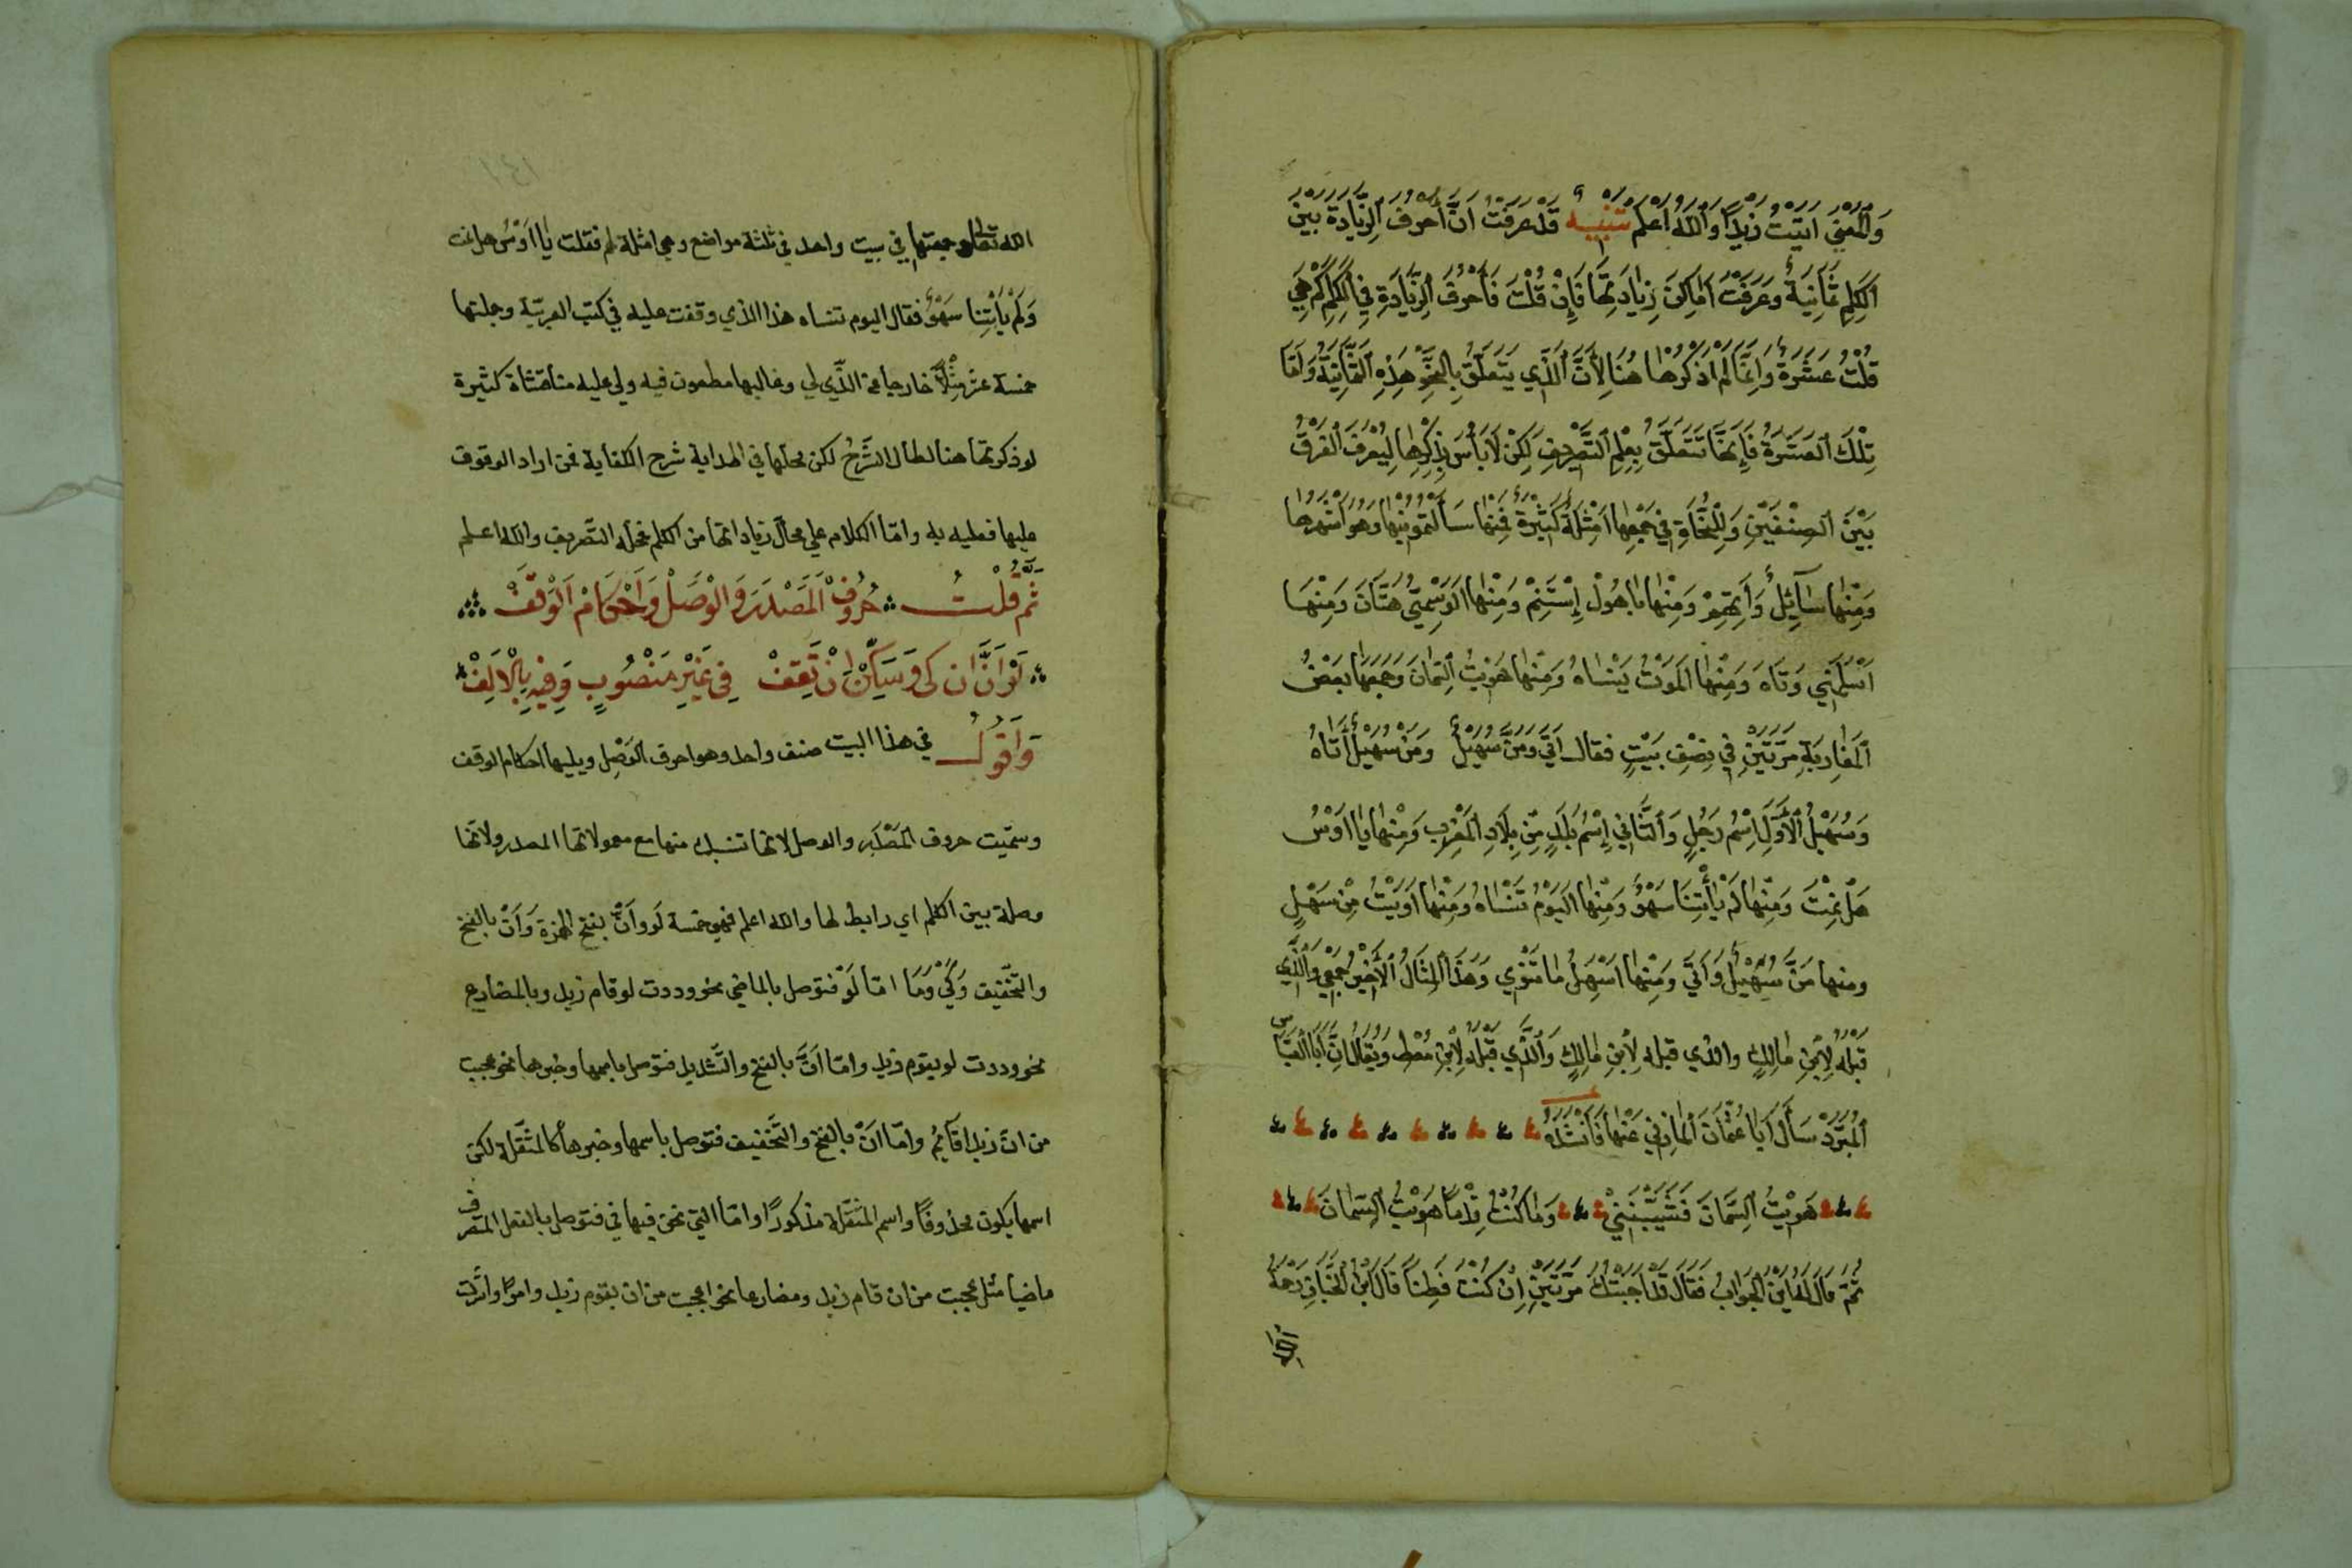 وَالْمَعْنَى اتيْتُ زَيْدًا وَاللّٰهُ اَعْلَمُ تَنْبِيهٌ قَدْ عَرَفْتَ اَنَّ أَحْرُفَ الزِّيَادَةِ بَيْنَ
الكَلِمِ ثَمَانِيَةٌ وَعَرَفْتَ اَمَاكِنَ زِيَادَتِهَا فَإِنْ قُلْتَ فَأَحْرُفُ الزِّيَادَةِ فِي الْكَلِمِ كَمْ هِيَ
قُلْتُ عَشَرَةٌ وَاِنَّمَا لَمْ اَذْكُرْهَا هُنَا لِأَنَّ الَّذِي يَتَعَلَّقُ بِالنَّحْوِ هَذِهِ الثَّمَانِيَةُ وَاَمَّا
تِلْكَ الْعَشَرَةُ فَإِنَّهَا تَتَعَلَّقُ بِعِلْمِ التَّصْرِيفِ لَكِنْ لَا بَأْسَ بِذِكْرِهَا لِيُعْرَفَ الْفَرْقُ
بَيْنَ الصِّنْفَيْنِ وَلِلنُّحَاةِ فِي جَمْعِهَا اَمْثِلَةٌ كَثِيرَةٌ فَمِنْهَا سَأَلْتُمُونِيهَا وَهُوَ اَشْهَرُهَا
وَمِنْهَا سَآئِلْ وَأَنْتَهِمُ وَمِنْهَا يَا هُوْلُ إِسْتَنِمْ وَمِنْهَا الْوَسْمِيّ هَتَّانَ وَمِنْهَا
اَسْلَمَنِي وَتَاهَ وَمِنْهَا الْمَوْتُ يَنْسَاهُ وَمِنْهَا هَوِيْتُ السِّمَانَ وَجَمَعَهَا بَعْضُ
الْمَغَارِبَةِ مَرَّتَيْنِ فِي نِصْفِ بَيْتٍ فقال اَتَى وَمَنْ سُهَيْلٌ وَمَنْ سُهَيْلٌ أَتَاهُ
وَسُهَيْلُ الْأَوَّلُ اِسْمُ رَجُلٍ وَالثَّانِي إِسْمُ بَلَدٍ مِّنْ بِلَادِ الْمَغْرِبِ وَمِنْهَا يَا اَوْسُ
هَلْ نِمْتَ وَمِنْهَا لَمْ يَأْتِنَا سَهْوٌ وَمِنْهَا الْيَوْمَ تَنْسَاهُ وَمِنْهَا اَوَيْتُ مِنْ سَهْلٍ
ومنها مَنَّ سُهَيْلٌ وَاَتَى وَمِنْهَا اَسْهَلُ مَا تَنْوِي وَهَذَا الْمِثَالُ الْأَخِيْرُ جَمْعِي وَالَّذِي
قَبْلَهُ لِابْنِ مَالِكٍ والذي قبله لِابْنِ مَالِكٍ وَالَّذِي قَبْلَهُ لِابْنِ مُعْطٍ وَيُقَالُ اِنَّ اَبَا الْعَبَّاس
الْمُبَرِّدَ سَأَلَ اَبَا عُثْمَانَ الْمَازِنِي عَنْهَا فَاَنْشَدَهُ
هَوِيْتُ السِّمَانَ فَشَيَّبْنَنِي وَمَا كُنْتُ قِدْمًا هَوِيْتُ السِّمَانَ
ثُمَّ قَالَ لَهُ اَيْنَ الْجَوَابُ فَقَالَ قَدْ اَجَبْتُكَ مَرَّتَيْنِ اِنْ كُنْتَ فَطِنًا قَالَ ابْنُ الْخَبَّازِ رَحِمَهُ
الله
الله تعالى وجمعتها في بيت واحد في ثلثة مواضع وهي امثلة لم فقلت يَا اَوْسُ هل نمت
وَلَمْ يَأْتِنَا سَهْوٌ فقال اليوم تنساه هذا الذي وقفت عليه في كتب العربيّة وجملتها
خمسة عشر مِثْلًا خارجا عن الّذي لي وغالبها مطعون فيه ولي عليه مناقشاة كثيرة
لو ذكرتها هنا لطال الشَّرْحُ لكن محلها في الهداية شرح الكفاية فمن اراد الوقوف
عليها فعليه به وامّا الكلام على محالّ زياداتها من الكلم فمحله التّصريف والله اعلم
ثُمَّ قُلْتُ حُرُوفُ الْمَصْدَرِ وَالْوَصْلِ وَاَحْكَامُ الْوَقْفِ
لَوْ اَنَّ ان كى وَ سَكِّنْ اِنْ تَقِفْ فِي غَيْرِ مَنْصُوبٍ وَفِيهِ بِالْاَلِفْ
وَاَقُولُ في هذا البيت صنف واحد وهو احرف الْوَصْلِ ويليها احكام الوقف
وسمّيت حروف الْمَصْدَرِ والوصل لانها تنسبك منها مع معمولاتها المصدر ولانّها
وصلة بين الكلم اي رابط لها والله اعلم فهي خمسة لَوْ وَاَنَّ بفتح الهمزة وَاَنْ بالفتح
والتّخْفيف وَكَيْ وَمَا امّا لَوْ فتوصل بالماضي نحو وددت لو قام زيد وبالمضارع
نحو وددت لو يقوم زيد وامّا اَنَّ بالفتح والتّشديد فتوصل باسمها وخبرها نحو عجبت
من انّ زيدا قَآئِمٌ وامّا اَنْ بالفتح والتّخفيف فتوصل باسمها وخبرها كالمثقّلة لكن
اسمها يكون محذوفًا واسم المثقّلة مذكورًا وامّا التي نحن فيها في فتوصل بالفعل المتصرف
ماضيا مثل عجبت من ان قام زيد ومضارعا نحو اعجبت من ان يقوم زيد وامرًا